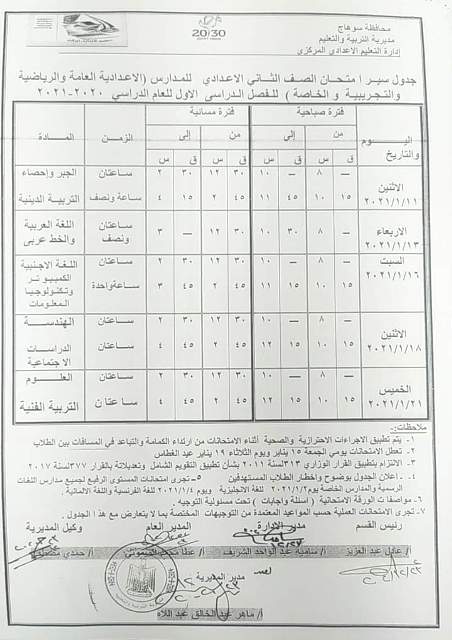 محافظة سوهاج
مديرية التربية والتعليم
إدارة التعليم الاعدادي المركزي
20 30
جدول سير امتحان الصف الثاني الاعدادي للمدارس (الاعدادية العامة والرياضية
والتجريبية والخاصة) للفصل الدراسى الاول للعام الدراسي ٢٠٢٠-٢٠٢١
اليوم والتاريخ فترة صباحية فترة مسائية الزمن المادة
من إلى من إلى
ق س ق س ق س ق س
الاثنين ٢٠٢١/١/١١
— ٨ — ١٠ ٣٠ ١٢ ٣٠ ٢ ساعتان الجبر وإحصاء
١٥ ١٠ ٤٥ ١١ ٤٥ ٢ ١٥ ٤ ساعة ونصف التربية الدينية
الاربعاء ٢٠٢١/١/١٣
— ٨ ٣٠ ١٠ ٣٠ ١٢ — ٣ ساعتان ونصف اللغة العربية والخط عربى
السبت ٢٠٢١/١/١٦
— ٨ — ١٠ ٣٠ ١٢ ٣٠ ٢ ساعتان اللغة الاجنبية
١٥ ١٠ ١٥ ١١ ٤٥ ٢ ٤٥ ٣ ساعة واحدة الكمبيوتر وتكنولوجيا المعلومات
الاثنين ٢٠٢١/١/١٨
— ٨ — ١٠ ٣٠ ١٢ ٣٠ ٢ ساعتان الهندسة
١٥ ١٠ ١٥ ١٢ ٤٥ ٢ ٤٥ ٤ ساعتان الدراسات الاجتماعية
الخميس ٢٠٢١/١/٢١
— ٨ — ١٠ ٣٠ ١٢ ٣٠ ٢ ساعتان العلوم
١٥ ١٠ ١٥ ١٢ ٤٥ ٢ ٤٥ ٤ ساعتان التربية الفنية
ملاحظات:-
١- يتم تطبيق الاجراءات الاحترازية والصحية أثناء الامتحانات من ارتداء الكمامة والتباعد في المسافات بين الطلاب
٢- تعطل الامتحانات يومي الجمعة ١٥ يناير ويوم الثلاثاء ١٩ يناير عيد الغطاس
٣- الالتزام بتطبيق القرار الوزاري ٣١٣ لسنة ٢٠١١ بشأن تطبيق التقويم الشامل وتعديلاته بالقرار ٣٧٧ لسنة ٢٠١٧
٤- إعلان الجدول بوضوح واخطار الطلاب المستهدفين ٥- تجرى امتحانات المستوى الرفيع لجميع مدارس اللغات
الرسمية والمدارس الخاصة يوم ٢٠٢١/١/٢ للغة الانجليزية ويوم ٢٠٢١/١/٤ للغة الفرنسية واللغة الالمانية.
٦- مواصفات الورقة الامتحانية (اسئلة واجابات) تحت مسئولية التوجيه.
٧- تجرى الامتحانات العملية حسب المواعيد المعتمدة من التوجيهات المختصة بما لا يتعارض مع هذا الجدول.
رئيس القسم مدير الادارة المدير العام وكيل المديرية
أ/ عادل عبد العزيز أ/ سامية عبد الواحد الشريف أ/ عطا محمد أ/ حمدي
مدير المديرية
أ/ ماهر عبد الخالق عبد اللاه